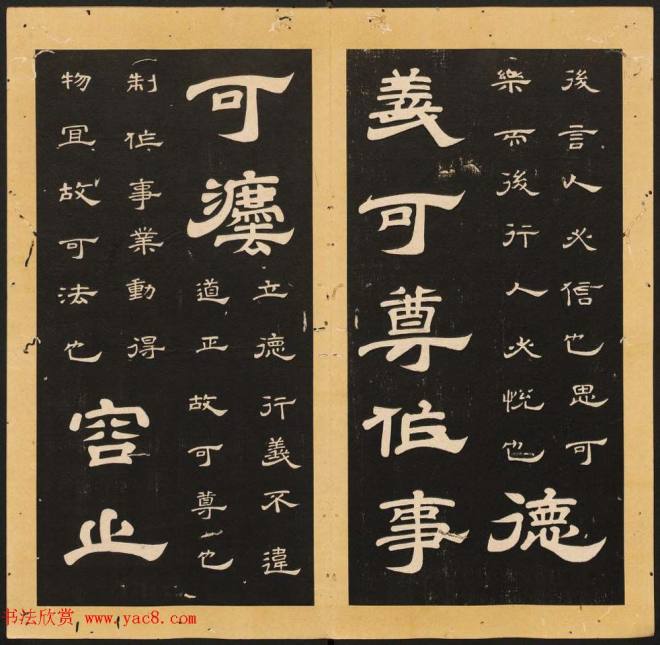 後言人必信也思可
樂而後行人必悅也
德
義可尊作事
可灋
立德行義不違
道正故可尊也
制作事業動得
物宜故可法也
容止
书法欣赏 www.yac8.com